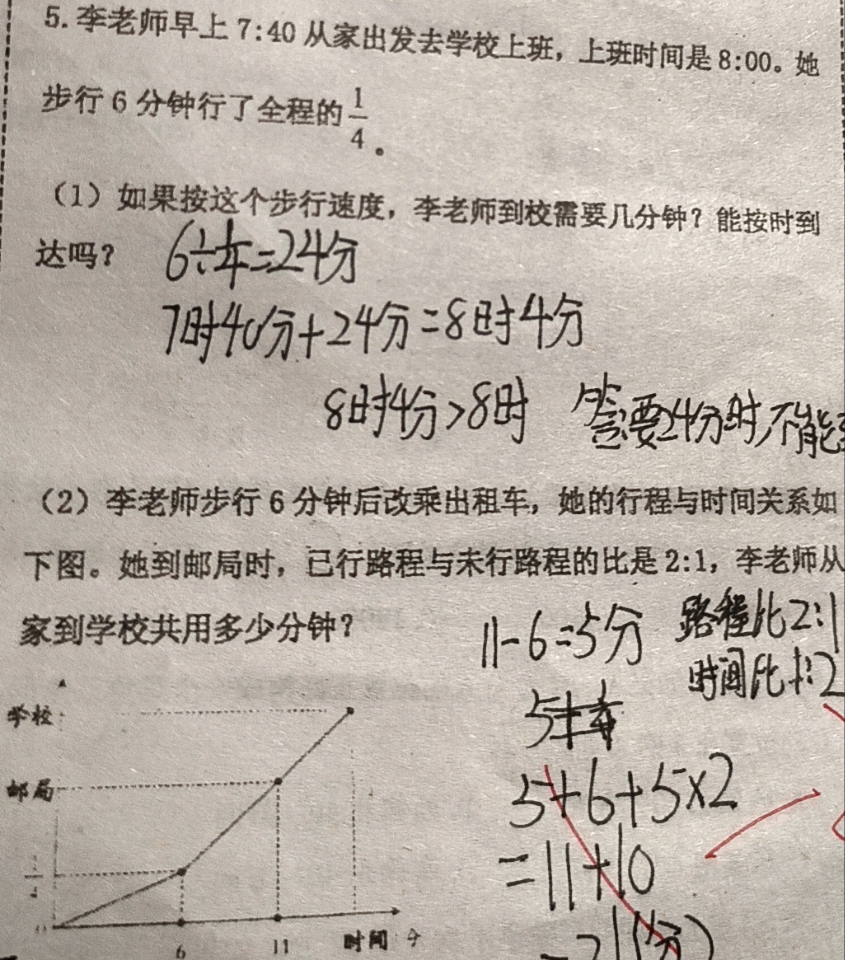 5.李老师早上7:40从家出发去学校上班，上班时间是8:00。她
步行6分钟行了全程的1/4。
（1）如果按这个步行速度，李老师到校需要几分钟？能按时到
达吗？
6÷1/4=24分
7时40分+24分=8时4分
8时4分>8时 答:需要24分时,不能
（2）李老师步行6分钟后改乘出租车，她的行程与时间关系如
下图。她到邮局时，已行路程与未行路程的比是2:1，李老师从
家到学校共用多少分钟？
11-6=5分
路程比2:1
时间比1:2
5+6+5×2
=11+10
=21(分)
学校
邮局
1/4
0
6
11
时间
分